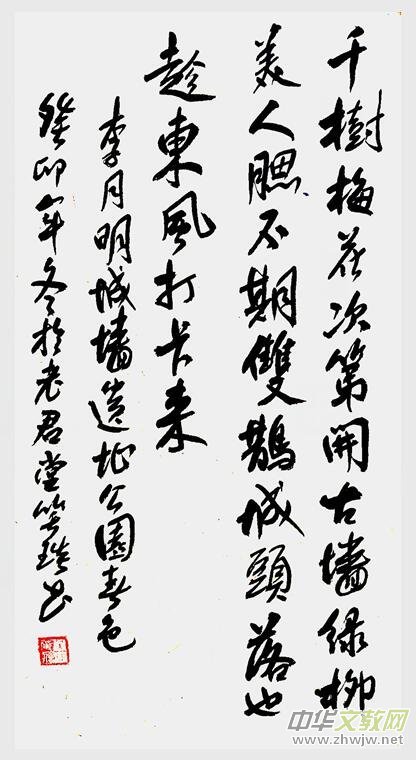 千樹梅花次第開古墻绿柳
美人腮不期雙鵲城頭落也
趁東風打卡来
李月明城墻遺址公園春色
癸卯年冬於老君堂笑书
中华文教网
www.zhwjw.net